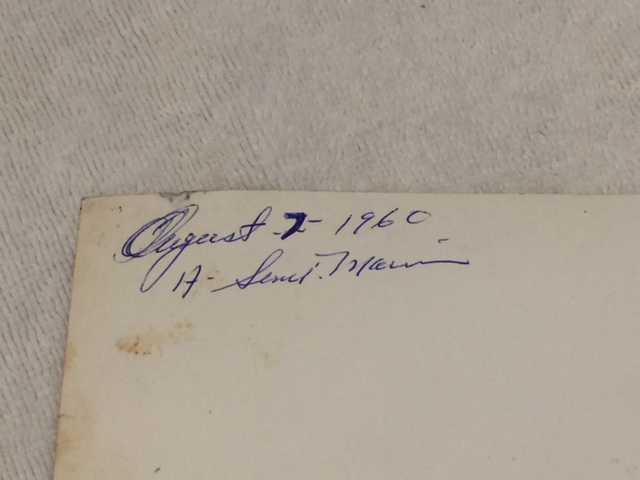 August 7 - 1960
A - Semi. Marin